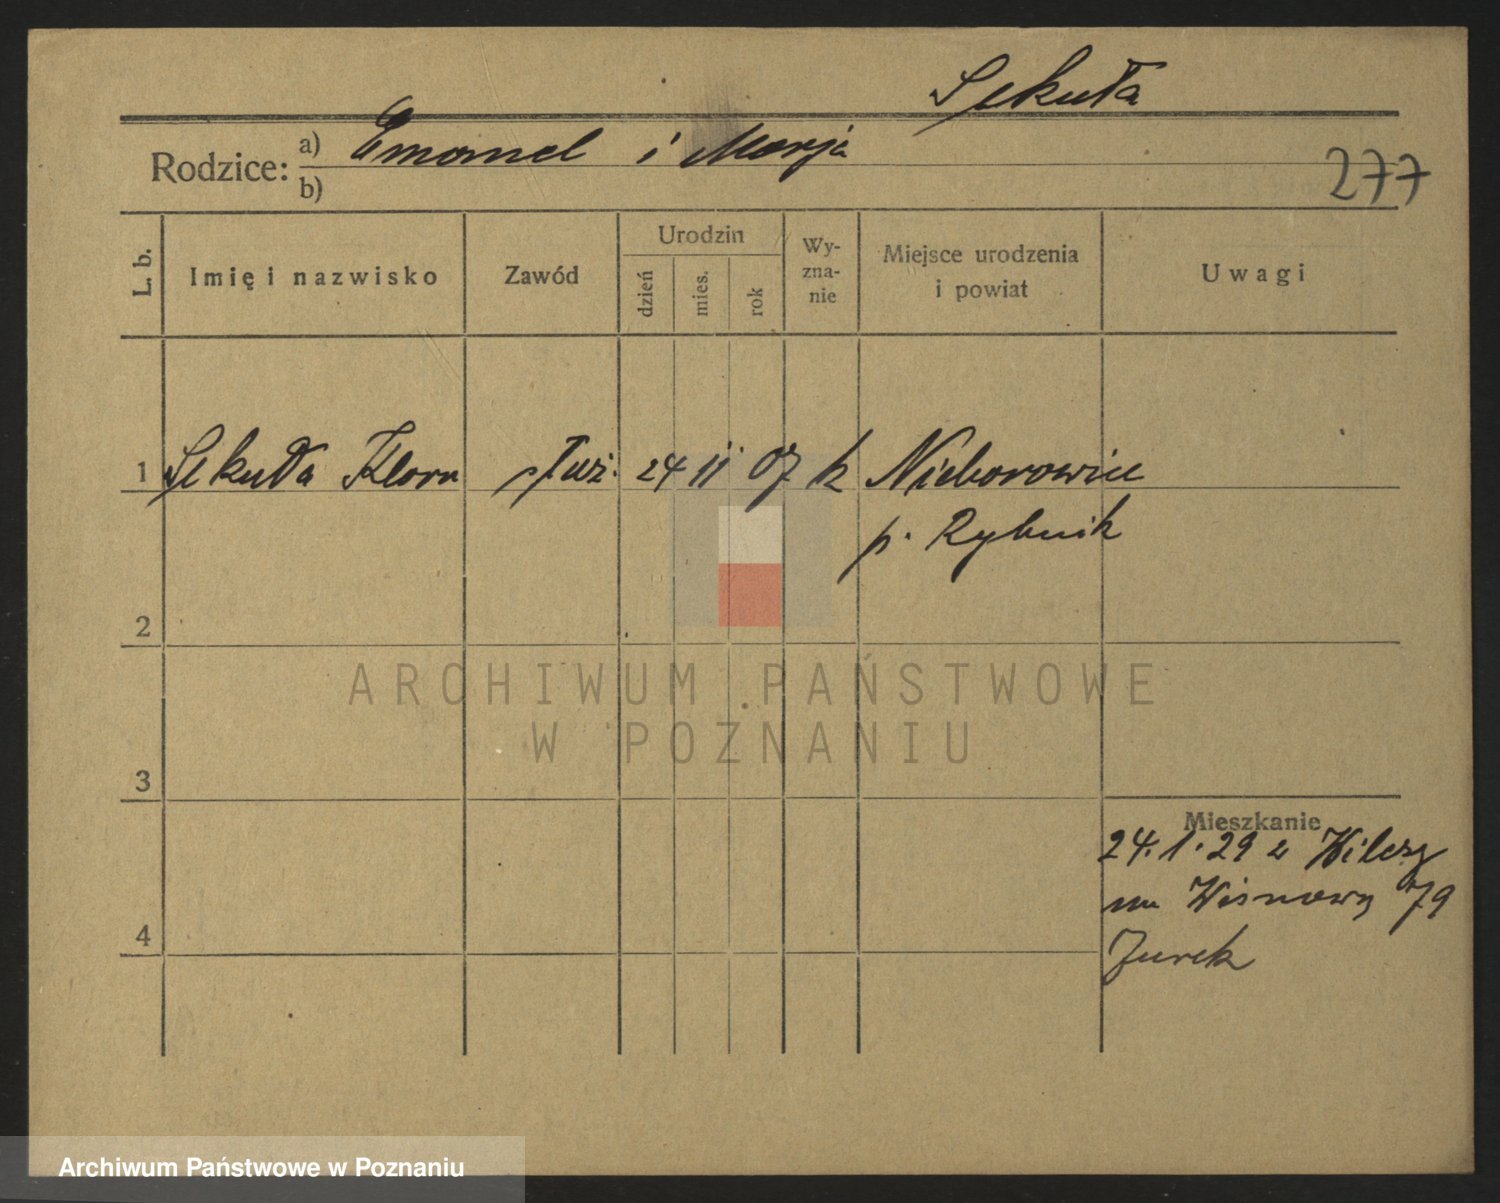 Sekuła
Rodzice: a) Emanuel i Marja
b)
277
L. b.
Imię i nazwisko
Zawód
Urodzin
dzień
mies.
rok
Wy-
zna-
nie
Miejsce urodzenia
i powiat
Uwagi
1 Sekuła Flora służ. 24 11 07 k Nieborowice
p. Rybnik
2
3
4
Mieszkanie
24.1.29 z Wilczy
na Wiśniowy 79
Jurek
ARCHIWUM PAŃSTWOWE
W POZNANIU
Archiwum Państwowe w Poznaniu